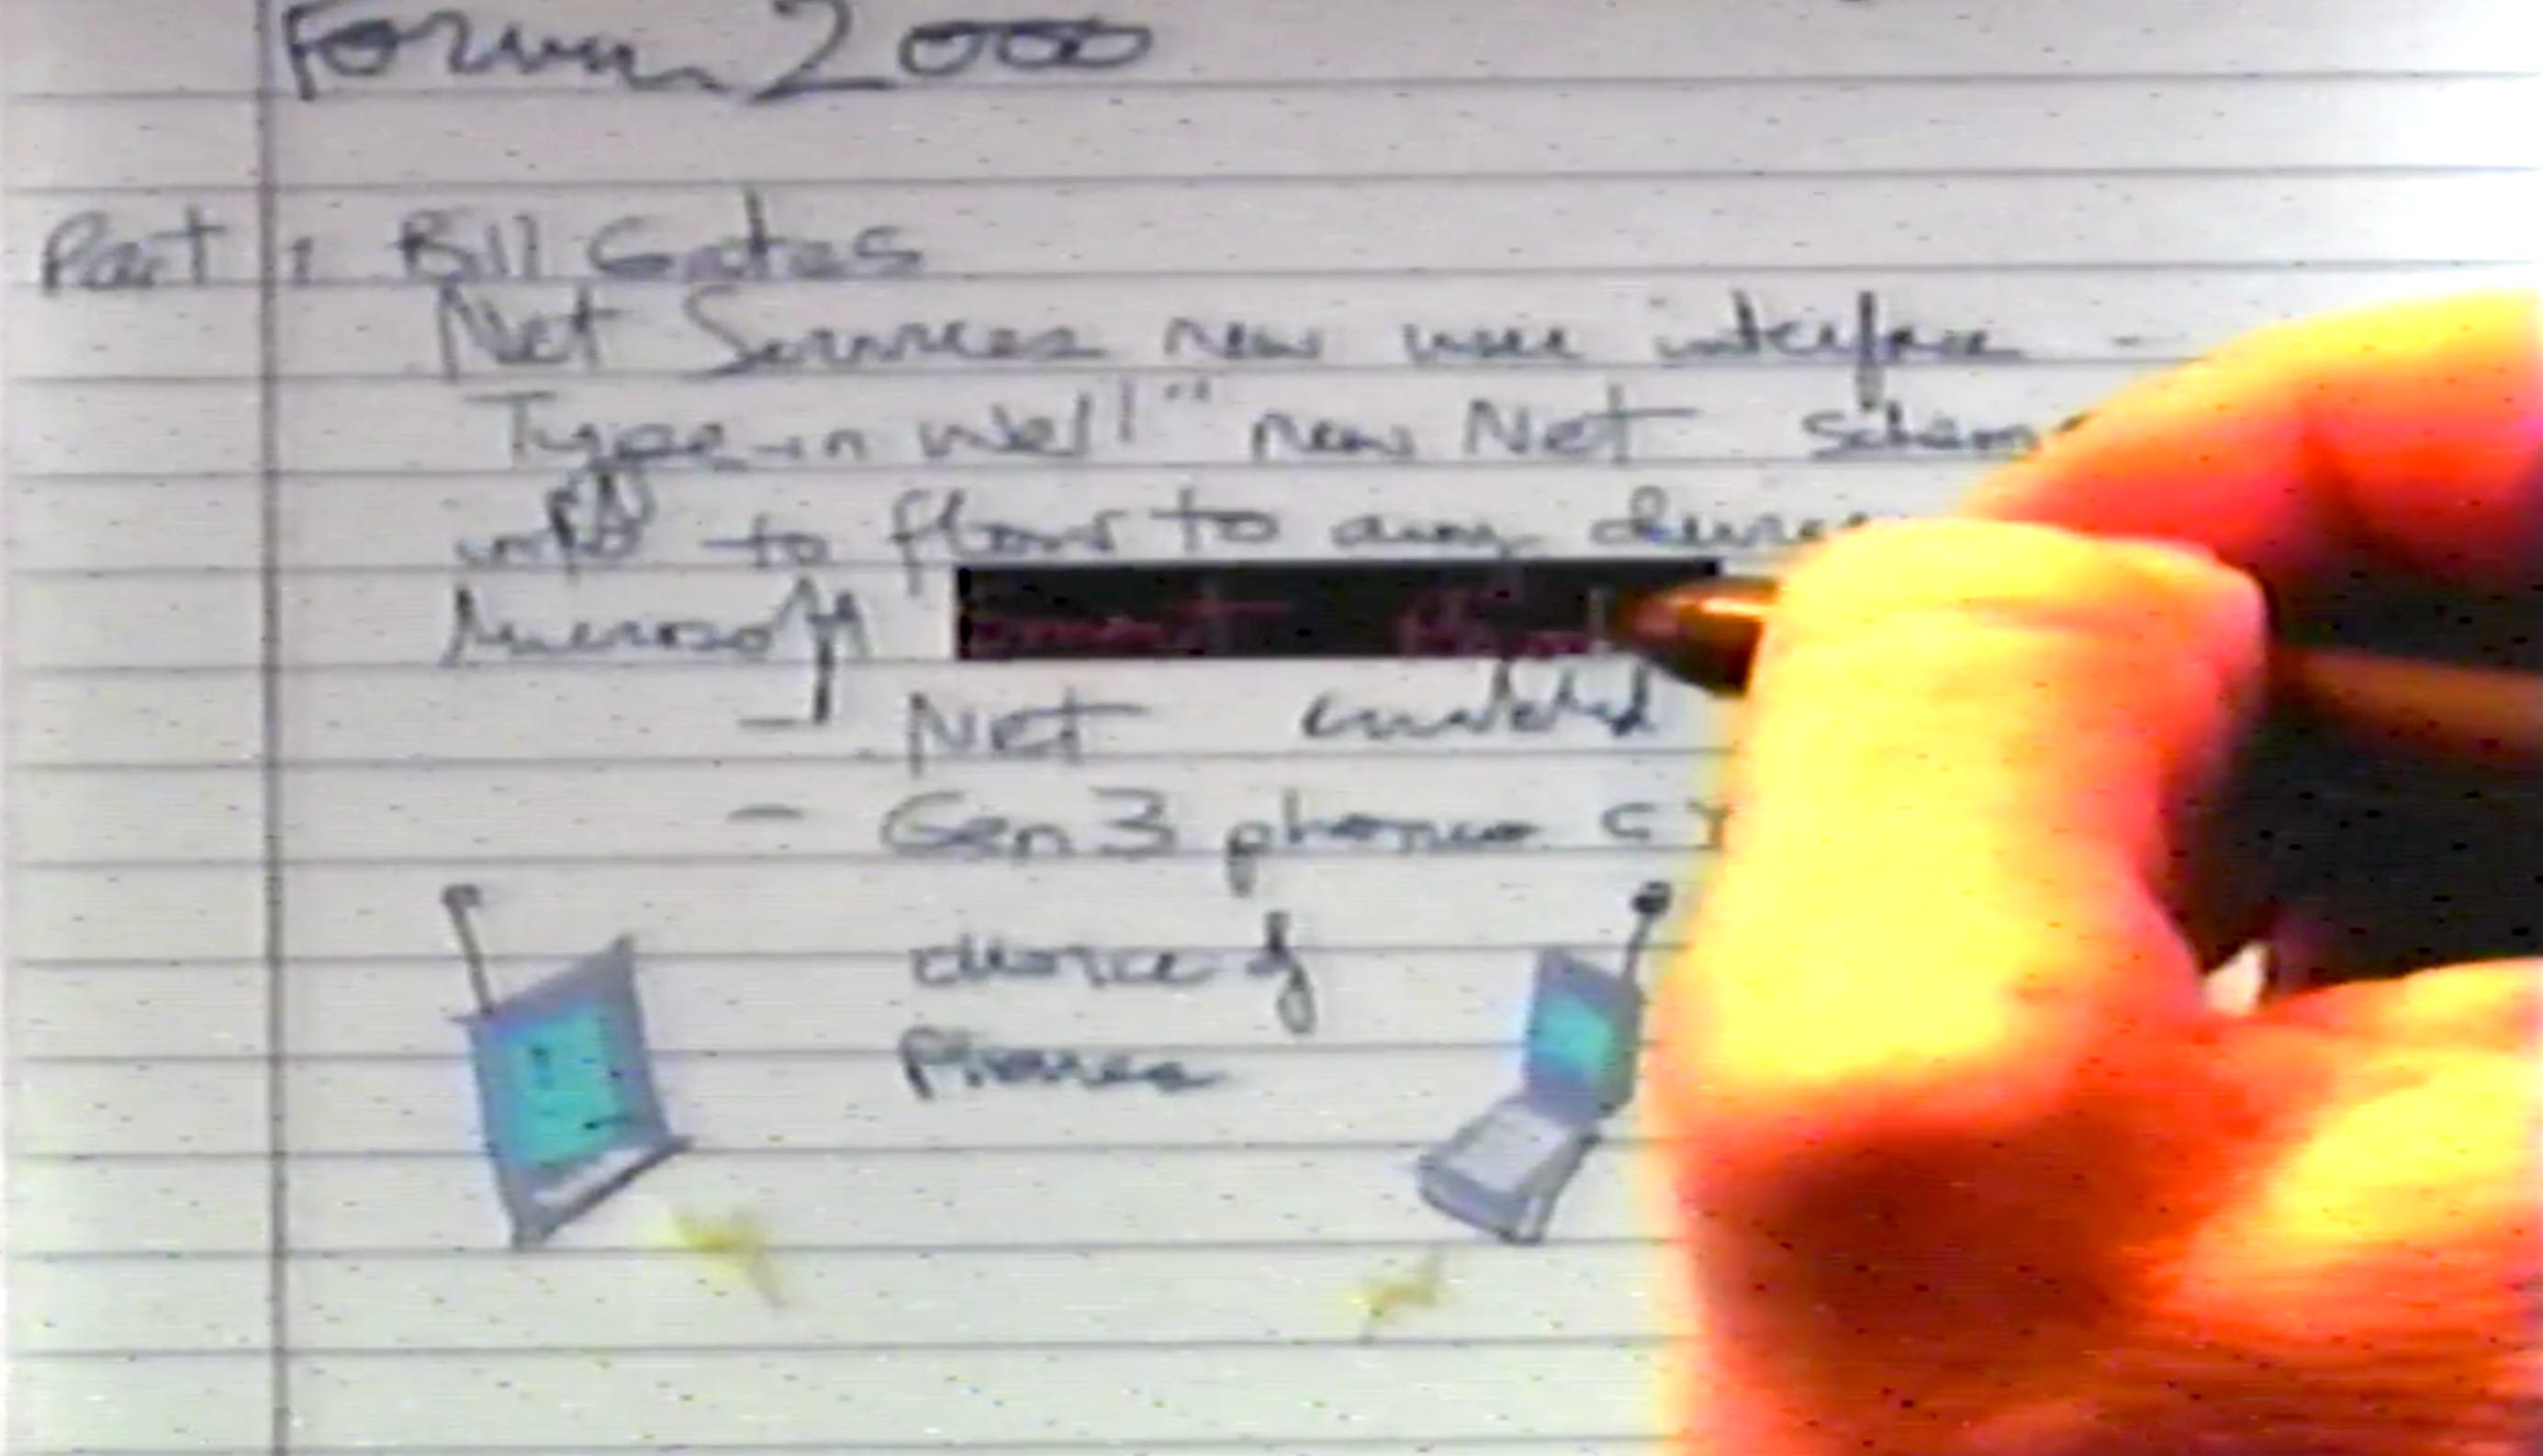 Forum 2000
Part 1 Bill Gates
Net Services new user interface -
Type-in Well" new Net schem
info to flow to any device
Microsoft smart Phon
- Net enabled
- Gen 3 phones
choice of
Phones